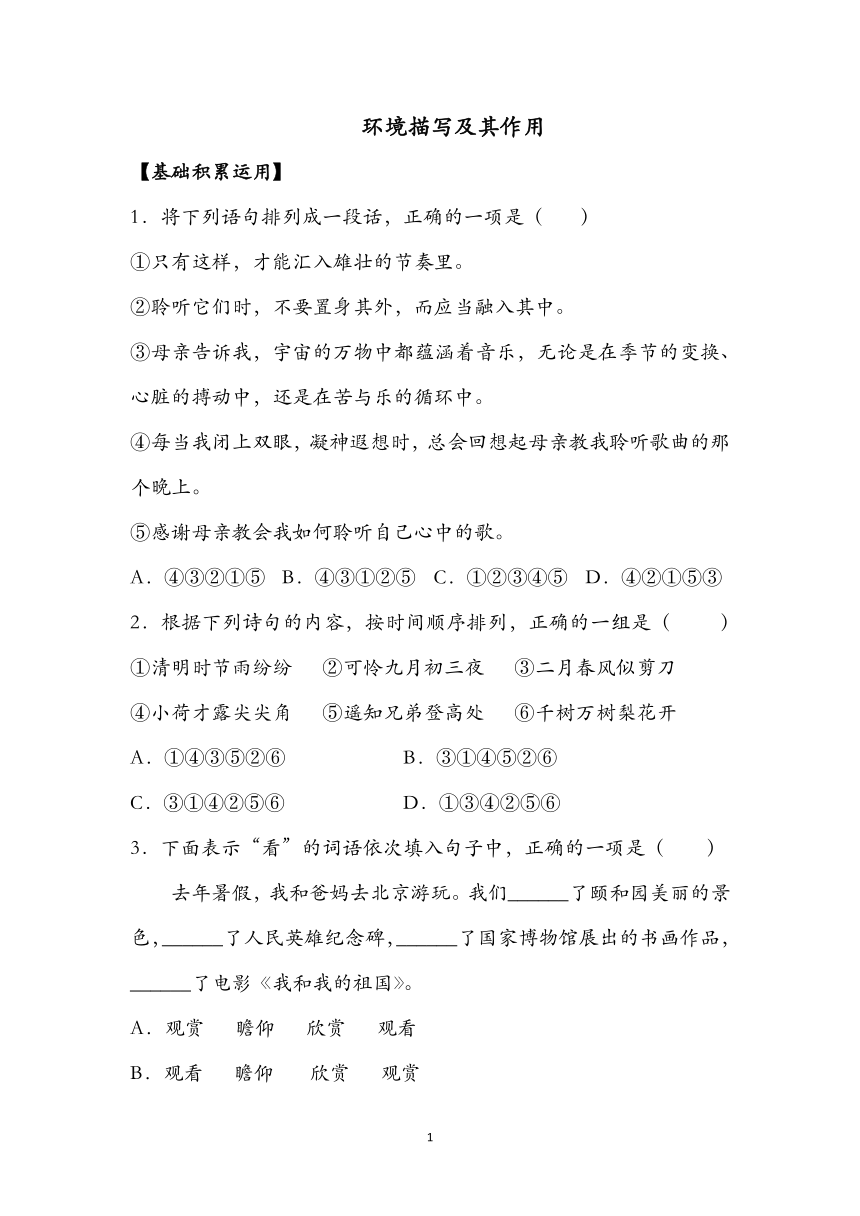 环境描写及其作用
【基础积累运用】
1．将下列语句排列成一段话，正确的一项是（　　）
①只有这样，才能汇入雄壮的节奏里。
②聆听它们时，不要置身其外，而应当融入其中。
③母亲告诉我，宇宙的万物中都蕴涵着音乐，无论是在季节的变换、
心脏的搏动中，还是在苦与乐的循环中。
④每当我闭上双眼，凝神遐想时，总会回想起母亲教我聆听歌曲的那
个晚上。
⑤感谢母亲教会我如何聆听自己心中的歌。
A．④③②①⑤ B．④③①②⑤ C．①②③④⑤ D．④②①⑤③
2．根据下列诗句的内容，按时间顺序排列，正确的一组是（　　）
①清明时节雨纷纷　②可怜九月初三夜　③二月春风似剪刀
④小荷才露尖尖角　⑤遥知兄弟登高处　⑥千树万树梨花开
A．①④③⑤②⑥　B．③①④⑤②⑥
C．③①④②⑤⑥　D．①③④②⑤⑥
3．下面表示“看”的词语依次填入句子中，正确的一项是（　　）
去年暑假，我和爸妈去北京游玩。我们______了颐和园美丽的景
色，______了人民英雄纪念碑，______了国家博物馆展出的书画作品，
______了电影《我和我的祖国》。
A．观赏　瞻仰　欣赏　观看
B．观看　瞻仰　欣赏　观赏
1